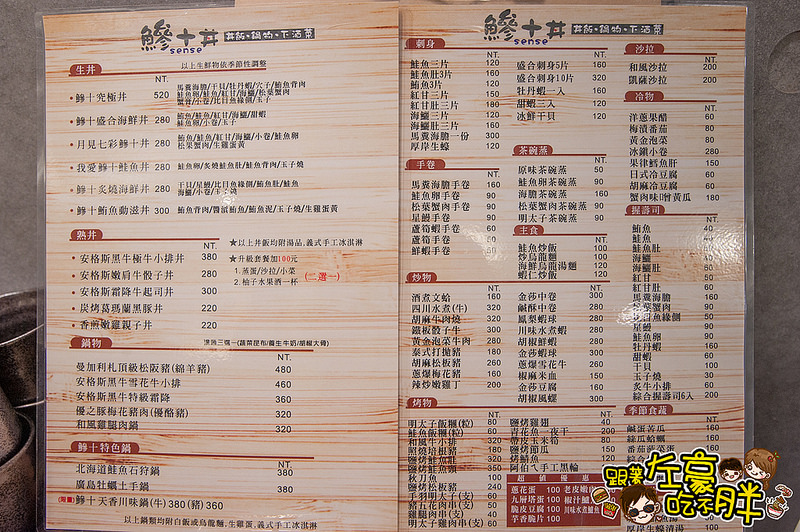 鯵十丼
sense
丼飯・鍋物・下酒菜
生丼
以上生鮮物依季節性調整
NT.
・鯵十究極丼 520
馬糞海膽/干貝/牡丹蝦/穴子/鮪魚背肉
・鯵十盛合海鮮丼 280
・月見七彩鯵十丼 280
松葉蟹肉/生雞蛋黃
・我愛鯵十鮭魚丼 280
鮭魚卵/炙燒鮭魚肚/鮭魚背肉/玉子燒
・鯵十炙燒海鮮丼 280
・鯵十鮪魚動滋丼 300
熟丼
NT.
★以上丼飯均附湯品,義式手工冰淇淋
・安格斯黑牛極牛小排丼 380
★升級套餐加100元
・安格斯嫩肩牛骰子丼 280
1.蒸蛋/沙拉/小菜
(二選一)
2.柚子水果酒一杯
・安格斯霜降牛起司丼 300
・炭烤葛瑪蘭黑豚丼 220
・香煎嫩雞親子丼 220
鍋物
NT.
曼加利札頂級松阪豬(綿羊豬) 480
安格斯黑牛雪花牛小排 460
安格斯黑牛特級霜降 360
優之豚梅花豬肉(優酪豬) 320
和風雞腿肉鍋 320
鯵十特色鍋
NT.
北海道鮭魚石狩鍋 380
廣島牡蠣土手鍋 380
(限量)鯵十天香川味鍋(牛)380(豬)360
以上鍋類均附白飯或烏龍麵,生雞蛋,義式手工冰淇淋
鯵十丼
sense
丼飯・鍋物・下酒菜
刺身
NT.
鮭魚三片 120
鮭魚肚3片 160
鮪魚3片 120
紅甘三片 150
紅甘肚三片 180
海鱺三片 120
海鱺肚三片 160
馬糞海膽一份 300
厚岸生蠔 120
NT.
盛合刺身5片 160
盛合刺身10片 320
牡丹蝦一入 160
甜蝦三入 120
冰鮮干貝 120
手卷
NT.
馬糞海膽手卷 160
鮭魚卵手卷 90
松葉蟹肉手卷 90
星鰻手卷 90
蘆筍蝦手卷 60
蘆筍手卷 50
鮮蝦手卷 60
茶碗蒸
NT.
原味茶碗蒸 50
鮭魚卵茶碗蒸 90
海膽茶碗蒸 160
松葉蟹茶碗蒸 90
明太子茶碗蒸 90
主食
NT.
鮭魚炒飯 100
炒烏龍麵 100
海鮮烏龍湯麵 120
蝦仁炒飯 120
炒物
NT.
酒煮文蛤 160
四川水煮(牛) 320
胡麻牛肉燒 320
鐵板骰子牛 300
黃金泡菜牛肉 300
泰式打拋豬 180
胡麻松板豬 220
蔥爆梅花豬 160
辣炒嫩雞丁 200
NT.
金莎中卷 300
鹹酥中卷 280
鳳梨蝦球 280
川味水煮蝦 280
胡椒鮮蝦 280
金莎蝦球 300
蔥爆雪花牛 260
椒麻米血 150
金莎豆腐 160
胡椒風螺 300
烤物
NT.
明太子飯糰(粒) 80
鮭魚飯糰(粒) 60
和風牛小排 320
鹽烤鮭魚肚
鹽烤鮭魚頭 350
秋刀魚 100
鹽烤松板豬
手羽明太子(支)
豬五花肉串(支)
雞腿肉串(支)
明太子雞肉串(支)
鹽烤雞翅 40
青花魚一夜干
帶皮玉米筍 80
鹽烤筊白筍
烤鯖魚
阿伯ㄟ手工黑輪
超值優惠
蔥花蛋 100
九層塔蛋 100
脆皮豆腐 100
芋香脆片 100
沙拉
NT.
和風沙拉 200
凱薩沙拉 200
冷物
NT.
洋蔥果醋 60
梅漬番茄 80
黃金泡菜 80
冰鎮小卷 280
果律鱈魚肝 150
日式冷豆腐 60
胡麻冷豆腐 60
蟹肉味噌黃瓜 180
握壽司
NT.
鮪魚 40
鮭魚 40
鮭魚肚 50
海鱺 40
海鱺肚 50
紅甘 50
紅甘肚 60
馬糞海膽 160
比目魚緣側 50
星鰻 90
鮭魚卵 90
牡丹蝦 160
甜蝦 60
干貝 100
玉子燒 30
炙牛小排 60
綜合握壽司6入 200
季節食蔬
NT.
鹹蛋苦瓜
絲瓜蛤蠣
番茄菠菜蛋
跟著左豪吃不胖